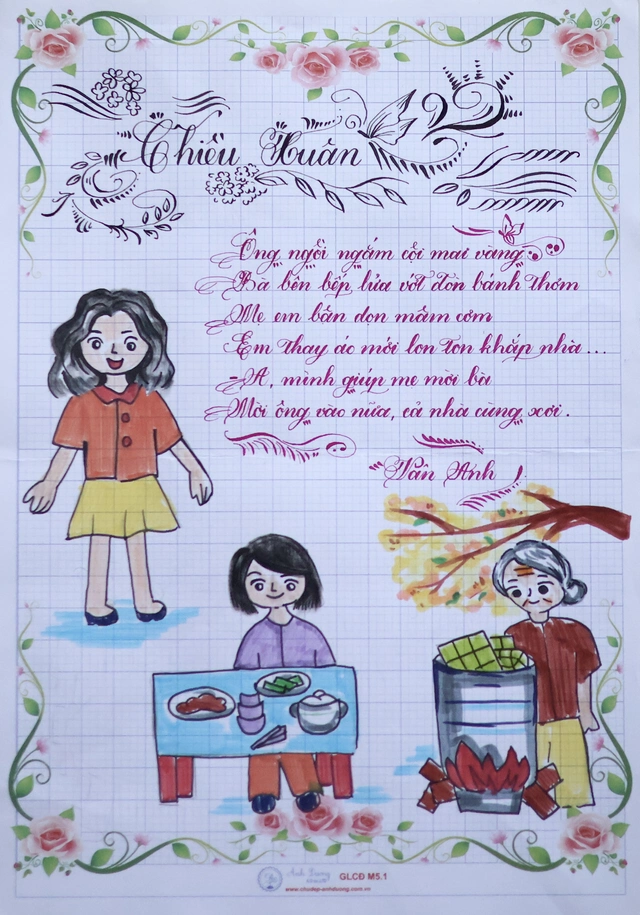 Chiều Xuân
Ông ngồi ngắm cội mai vàng
Bà bên bếp lửa vớt đòn bánh thơm
Mẹ em bận dọn mâm cơm
Em thay áo mới lon ton khắp nhà...
-A, mình giúp mẹ mời bà
Mời ông vào nữa, cả nhà cùng xơi.
Vân Anh
Ánh Dương
GLCĐ M5.1
www.chudep-anhduong.com.vn